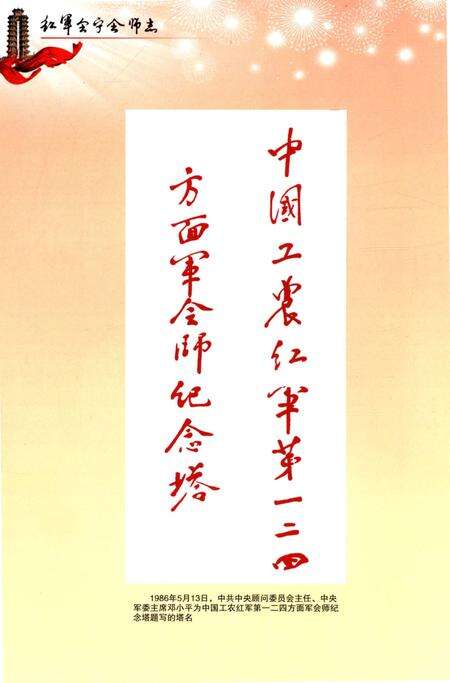 红军会宁会师志
中國工农红军第一二四
方面军会师纪念塔
1986年5月13日，中共中央顾问委员会主任、中央
军委主席邓小平为中国工农红军第一二四方面军会师纪
念塔题写的塔名